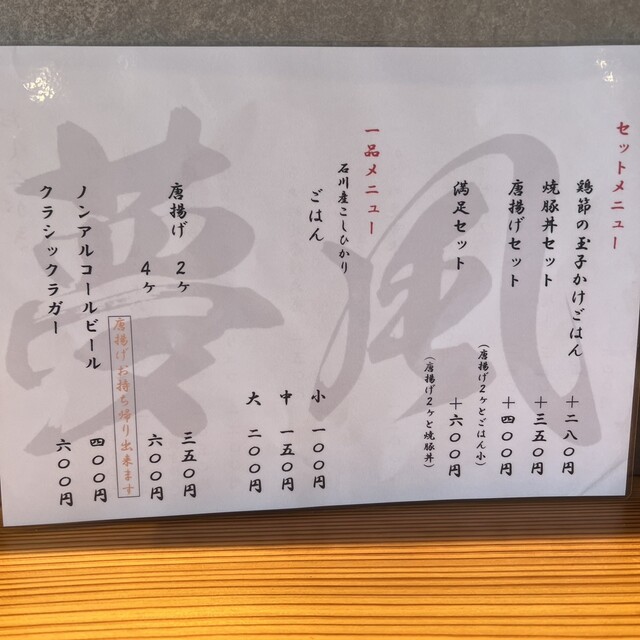 セットメニュー
鶏節の玉子かけごはん　＋二八〇円
焼豚丼セット　＋三五〇円
唐揚げセット　＋四〇〇円
（唐揚げ２ヶとごはん小）
満足セット　＋六〇〇円
（唐揚げ２ヶと焼豚丼）
一品メニュー
石川産こしひかり
ごはん　小　一〇〇円
中　一五〇円
大　二〇〇円
唐揚げ　２ヶ　三五〇円
４ヶ　六〇〇円
唐揚げお持ち帰り出来ます
ノンアルコールビール　四〇〇円
クラシックラガー　六〇〇円
風夢